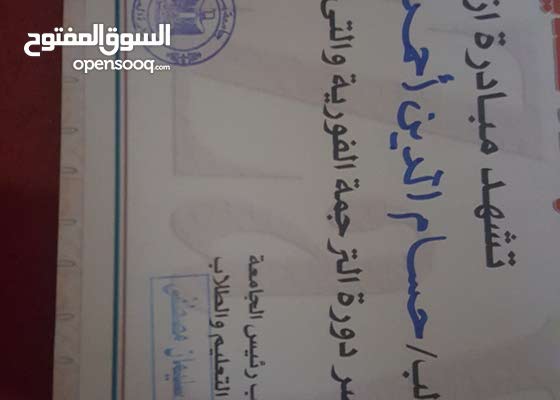 السوق المفتوح
opensooq.com
تشهد مبادرة
لب/ حسام الدين أحمد
دورة الترجمة الفورية والتي
ب رئيس الجامعة
التعليم والطلاب
سليمان مصطفى